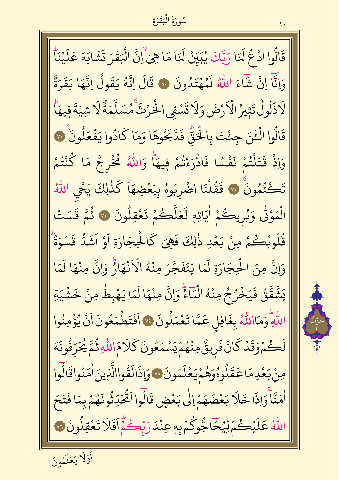 سُورَةُ الْبَقَرَةِ
قَالُوا ادْعُ لَنَا رَبَّكَ يُبَيِّنْ لَنَا مَا هِيَ اِنَّ الْبَقَرَ تَشَابَهَ عَلَيْنَا
وَاِنَّا اِنْ شَاءَ اللّٰهُ لَمُهْتَدُونَ قَالَ اِنَّهُ يَقُولُ اِنَّهَا بَقَرَةٌ
لَا ذَلُولٌ تُثِيرُ الْاَرْضَ وَلَا تَسْقِي الْحَرْثَ مُسَلَّمَةٌ لَا شِيَةَ فِيهَا
قَالُوا الْـٰٔنَ جِئْتَ بِالْحَقِّ فَذَبَحُوهَا وَمَا كَادُوا يَفْعَلُونَ
وَاِذْ قَتَلْتُمْ نَفْسًا فَادّٰرَءْتُمْ فِيهَا وَاللّٰهُ مُخْرِجٌ مَا كُنْتُمْ
تَكْتُمُونَ فَقُلْنَا اضْرِبُوهُ بِبَعْضِهَا كَذٰلِكَ يُحْيِ اللّٰهُ
الْمَوْتٰى وَيُرِيكُمْ اٰيَاتِهِ لَعَلَّكُمْ تَعْقِلُونَ ثُمَّ قَسَتْ
قُلُوبُكُمْ مِنْ بَعْدِ ذٰلِكَ فَهِيَ كَالْحِجَارَةِ اَوْ اَشَدُّ قَسْوَةً
وَاِنَّ مِنَ الْحِجَارَةِ لَمَا يَتَفَجَّرُ مِنْهُ الْاَنْهَارُ وَاِنَّ مِنْهَا لَمَا
يَشَّقَّقُ فَيَخْرُجُ مِنْهُ الْمَاءُ وَاِنَّ مِنْهَا لَمَا يَهْبِطُ مِنْ خَشْيَةِ
اللّٰهِ وَمَا اللّٰهُ بِغَافِلٍ عَمَّا تَعْمَلُونَ اَفَتَطْمَعُونَ اَنْ يُؤْمِنُوا
لَكُمْ وَقَدْ كَانَ فَرِيقٌ مِنْهُمْ يَسْمَعُونَ كَلَامَ اللّٰهِ ثُمَّ يُحَرِّفُونَهُ
مِنْ بَعْدِ مَا عَقَلُوهُ وَهُمْ يَعْلَمُونَ وَاِذَا لَقُوا الَّذِينَ اٰمَنُوا قَالُوا
اٰمَنَّا وَاِذَا خَلَا بَعْضُهُمْ اِلٰى بَعْضٍ قَالُوا اَتُحَدِّثُونَهُمْ بِمَا فَتَحَ
اللّٰهُ عَلَيْكُمْ لِيُحَاجُّوكُمْ بِهِ عِنْدَ رَبِّكُمْ اَفَلَا تَعْقِلُونَ
اَوَلَا يَعْلَمُونَ